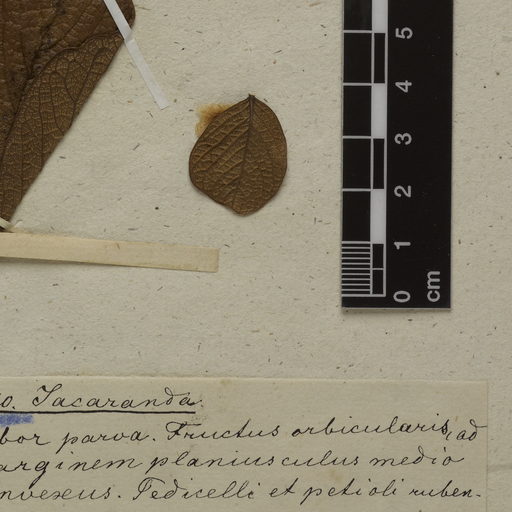 5
4
3
2
1
0
cm
o. Jacaranda
bor parva. Fructus orbicularis, ad
arginem planiusculus medio
nvexus. Pedicelli et petioli ruben-